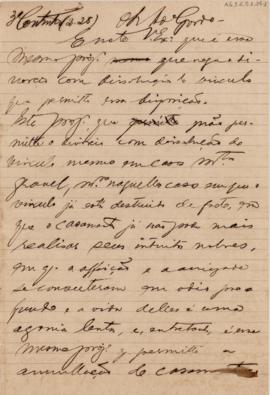 E note V. Ex.ª que é esse
mesmo proj. que nega o di-
vorcio com dissolução do vinculo
que permitte essa
Este proj. que não per-
mitte o divorcio com dissolução do
vinculo, mesmo em caso m.to
grave, m.mo naquelle caso em que o
vinculo já está destruido de facto, em
que o casam.to já não pode mais
realisar seus intuitos nobres,
em q. a affeição e a amizade
se converteram em odio pro-
fundo e a vida delles é uma
agonia lenta, e, entretanto, é esse
mesmo proj. q. permitte a
annullação do casamento